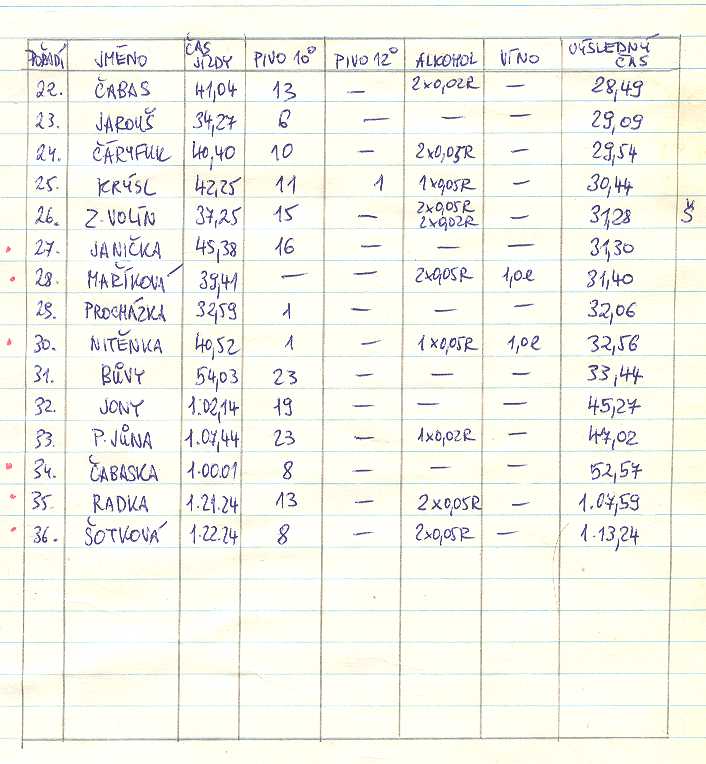 POŘADÍ JMÉNO ČAS JÍZDY PIVO 10° PIVO 12° ALKOHOL VÍNO VÝSLEDNÝ ČAS
22. ČABAS 41,04 13 — 2x0,02R — 28,49
23. JAROUŠ 34,27 6 — — — 29,09
24. ČÁRYFUK 40,40 10 — 2x0,05R — 29,54
25. KRÝSL 42,25 11 1 1x0,05R — 30,44
26. Z. VOLÍN 37,25 15 — 2x0,05R 2x0,02R — 31,28 Š
27. JANIČKA 45,38 16 — — — 31,30
28. MAŘÍKOVÁ 39,41 — — 2x0,05R 1,0l 31,40
29. PROCHÁZKA 32,59 1 — — — 32,06
30. NITĚNKA 40,52 1 — 1x0,05R 1,0l 32,56
31. BŮVY 54,03 23 — — — 33,44
32. JONY 1.02,14 19 — — — 45,27
33. P. JŮNA 1.07,44 23 — 1x0,02R — 47,02
34. ČABASKA 1.00.01 8 — — — 52,57
35. RADKA 1.21.24 13 — 2x0,05R — 1.07,59
36. ŠOTKOVÁ 1.22.24 8 — 2x0,05R — 1.13,24